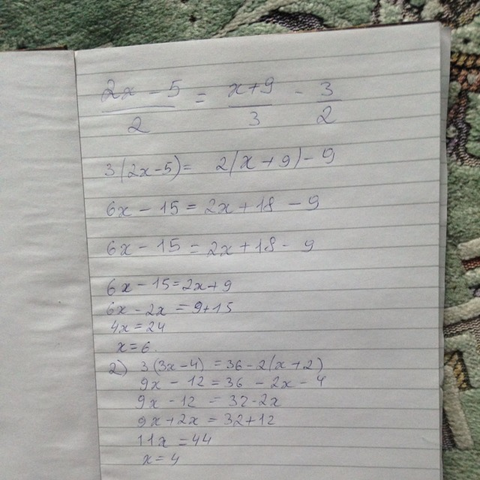 2x - 5 / 2 = x+9 / 3 - 3 / 2
3(2x-5) = 2(x+9) - 9
6x - 15 = 2x + 18 - 9
6x - 15 = 2x + 18 - 9
6x - 15 = 2x + 9
6x - 2x = 9 + 15
4x = 24
x = 6
2) 3(3x-4) = 36 - 2(x+2)
9x - 12 = 36 - 2x - 4
9x - 12 = 32 - 2x
9x + 2x = 32 + 12
11x = 44
x = 4